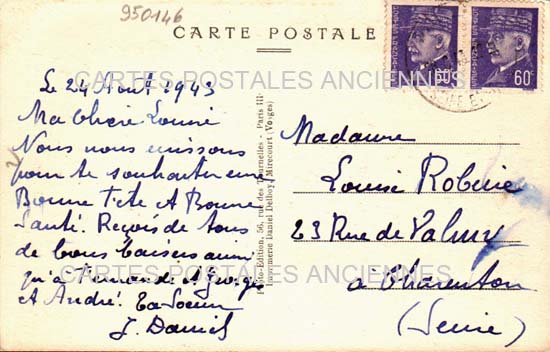 950146
CARTE POSTALE
60c
CARTES POSTALES ANCIENNES
Le 24 Août 1943
Ma Chère Louise
Nous nous unissons
pour te souhaiter une
Bonne Fête et Bonne
Santé. Reçois de tous
de bons baisers ainsi
qu'à Fernande et Georges
et André. Ta Soeur
J. Daniel
Photo-Edition, 56, rue des Tournelles - Paris III
Imprimerie Daniel Delboy, Mirecourt (Vosges)
Madame
Louise Robine
23 Rue de Valmy
à Charenton
(Seine)
CARTES POSTALES ANCIENNES